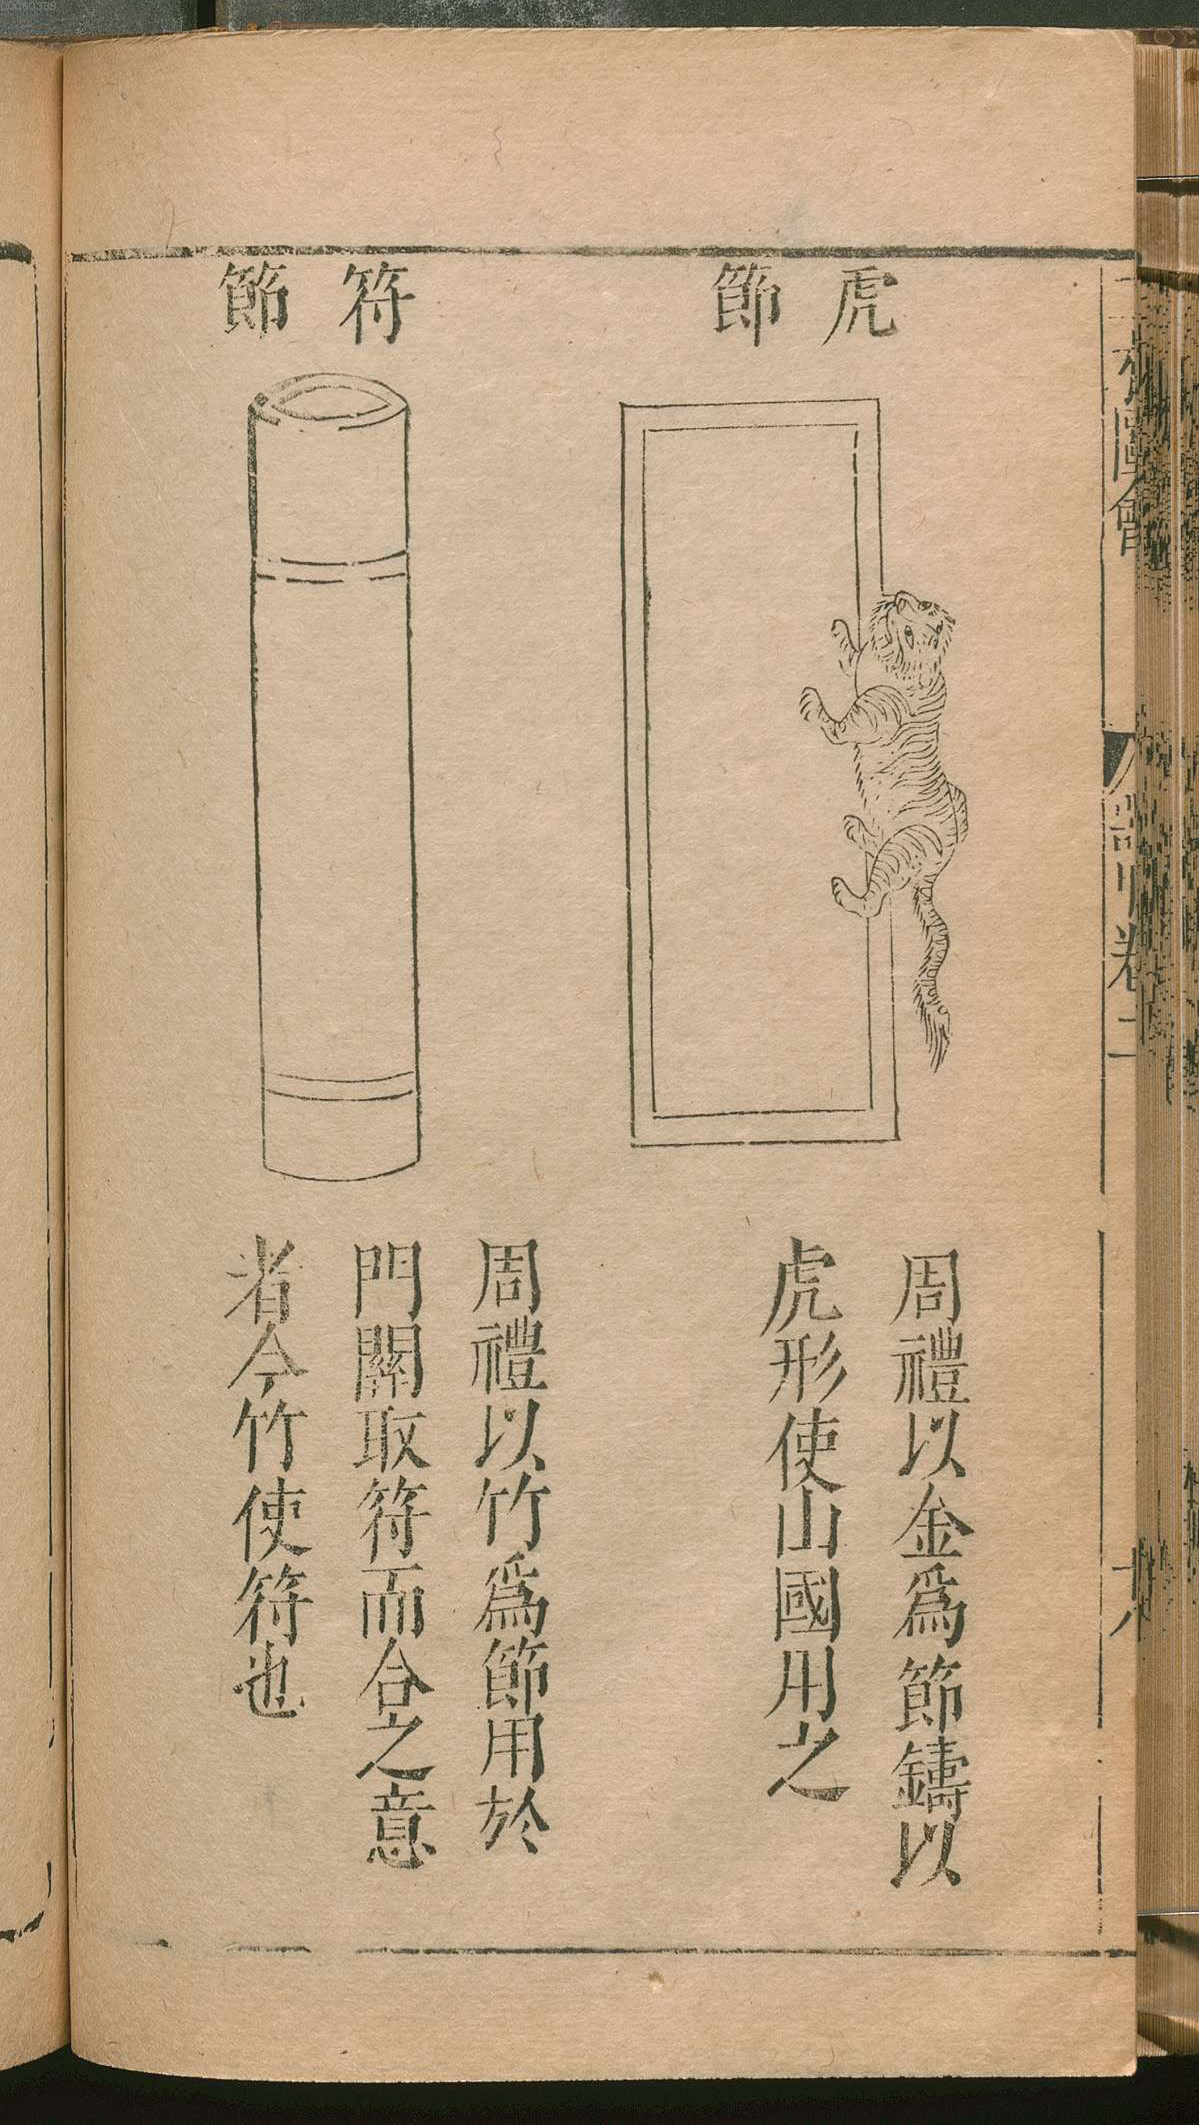 虎節
周禮以金爲節鑄以
虎形使山國用之
符節
周禮以竹爲節用於
門關取符而合之意
者今竹使符也
圖會
卷二